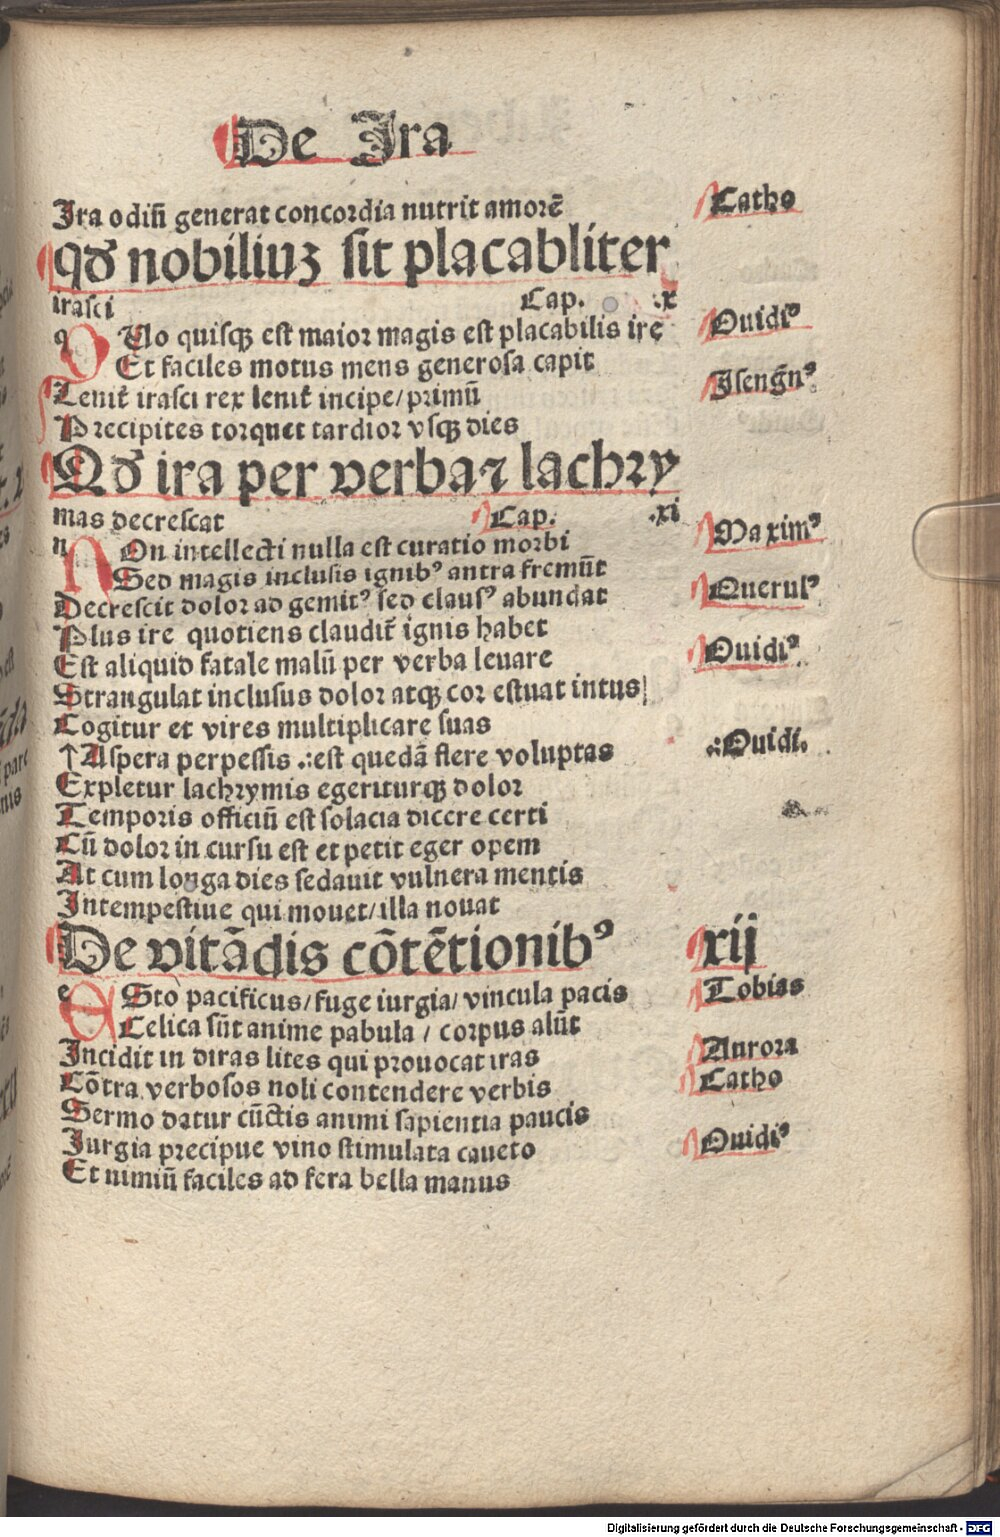 De Ira
Ira odiū generat concordia nutrit amorē
Catho
qď nobiliuʒ sit placabliter
irasci Cap. .x
q Uo quisqꝫ est maior magis est placabilis irę
Ouidiꝰ
Et faciles motus mens generosa capit
Leniť irasci rex leniť incipe/primū
Isengn̄ꝰ
Precipites torquet tardior vsqꝫ dies
Qď ira per verba⁊ lachry
mas decrescat Cap. .xi
n On intellecti nulla est curatio morbi
Maximꝰ
Sed magis inclusis ignibꝰ antra fremūt
Decrescit dolor ad gemitꝰ sed clausꝰ abundat
Querulꝰ
Plus ire quotiens claudiť ignis habet
Est aliquid fatale malū per verba leuare
Ouidiꝰ
Strangulat inclusus dolor atqꝫ cor estuat intus
Cogitur et vires multiplicare suas
↑Aspera perpessis .:est quedā flere voluptas
.:Ouidi.
Expletur lachrymis egeriturqꝫ dolor
Temporis officiū est solacia dicere certi
Cū dolor in cursu est et petit eger opem
At cum longa dies sedauit vulnera mentis
Intempestiue qui mouet/illa nouat
De vitādis cōtētionibꝰ xij
e Sto pacificus/fuge iurgia/vincula pacis
Tobias
Celica sūt anime pabula / corpus alūt
Incidit in diras lites qui prouocat iras
Aurora
Cōtra verbosos noli contendere verbis
Catho
Sermo datur cūctis animi sapientia paucis
Iurgia precipue vino stimulata caueto
Ouidiꝰ
Et nimiū faciles ad fera bella manus
Digitalisierung gefördert durch die Deutsche Forschungsgemeinschaft - DFG